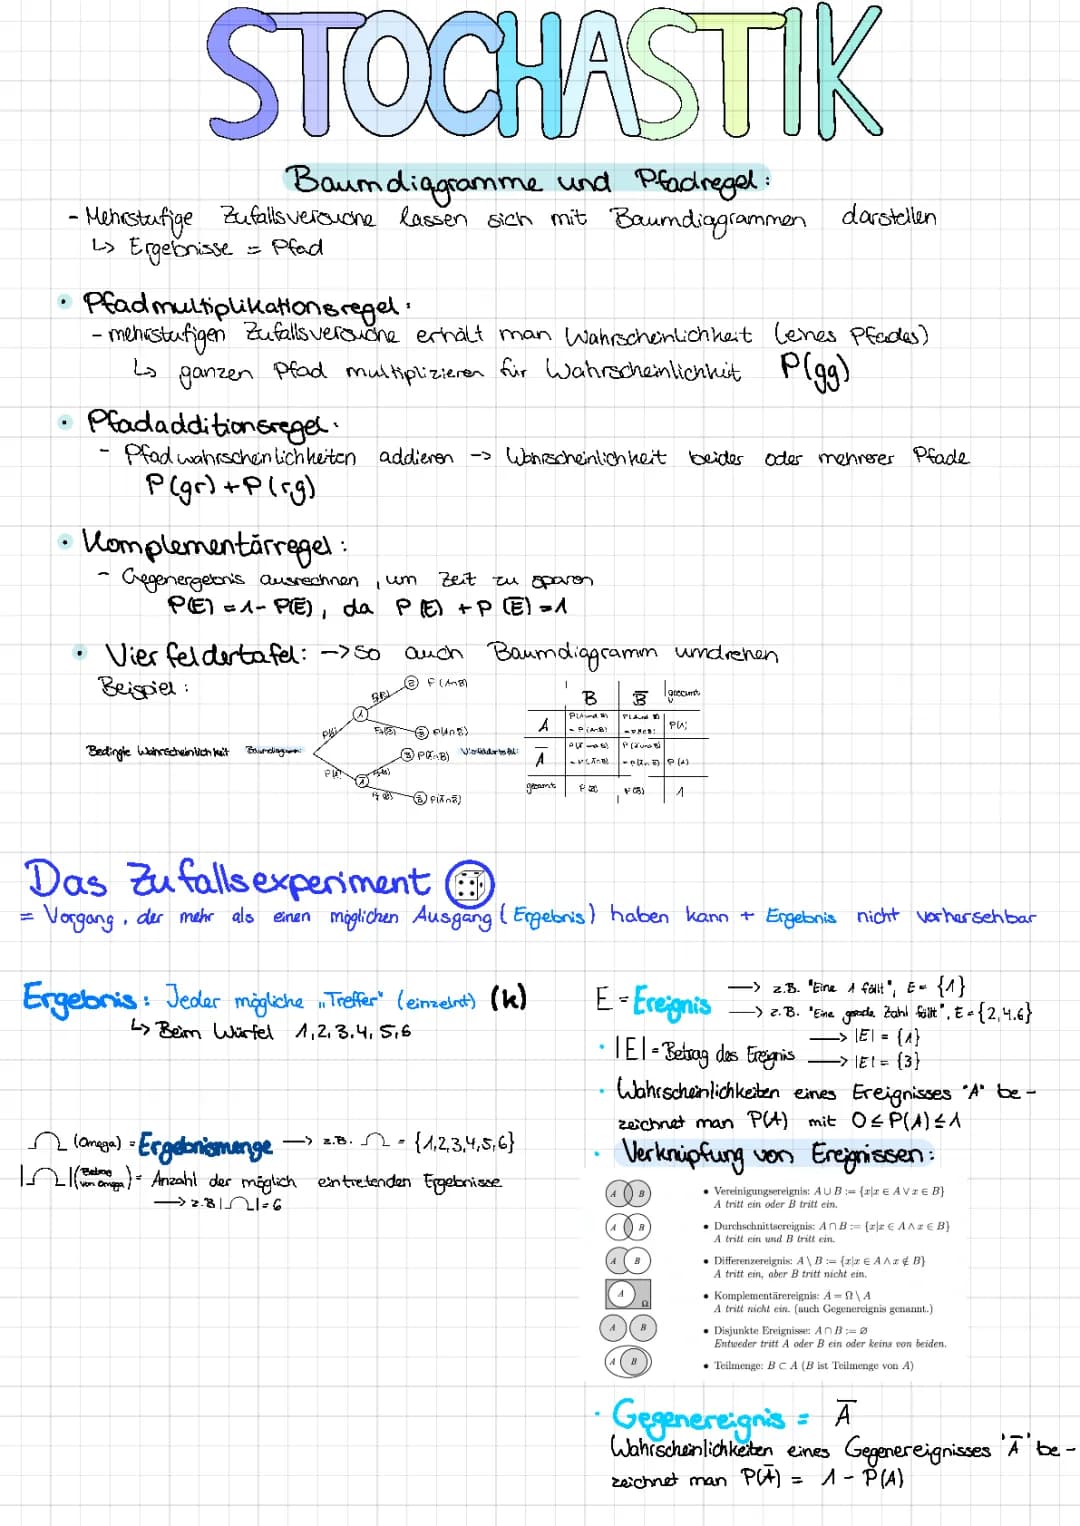 STOCHASTIK
Baumdiagramme und Pfadregel:
- Mehrstufige Zufallsversuche lassen sich mit Baumdiagrammen darstellen
↳ Ergebnisse = Pfad
• Pfadmultiplikationsregel:
- mehrstufigen Zufallsversuche erhält man Wahrscheinlichkeit (eines Pfades)
↳ ganzen Pfad multiplizieren für Wahrscheinlichkeit P(gg)
• Pfadadditionsregel:
- Pfadwahrscheinlichkeiten addieren -> Wahrscheinlichkeit beider oder mehrerer Pfade
P(gr) + P(rg)
• Komplementärregel:
- Gegenergebnis ausrechnen, um Zeit zu sparen
P(E) = 1 - P(Ē), da P(E) + P(Ē) = 1
• Vierfeldertafel: -> so auch Baumdiagramm umdrehen
Beispiel:
Bedingte Wahrscheinlichkeit Baumdiagramm:
P(A∩B̄)
P(Ā∩B)
P(Ā∩B̄)
B B̄ gesamt
A P(A)
Ā
gesamt 1
Das Zufallsexperiment
= Vorgang, der mehr als einen möglichen Ausgang (Ergebnis) haben kann + Ergebnis nicht vorhersehbar
Ergebnis: Jeder mögliche „Treffer" (einzelnt) (k)
↳ Beim Würfel 1,2,3,4,5,6
Ω (Omega) = Ergebnismenge -> z.B. Ω = {1,2,3,4,5,6}
|Ω| (Betrag von Omega) = Anzahl der möglich eintretenden Ergebnisse
-> z.B |Ω| = 6
E = Ereignis -> z.B. "Eine 1 fällt", E = {1}
-> z.B. "Eine gerade Zahl fällt", E = {2,4,6}
• |E| = Betrag des Ereignis -> |E| = {1}
-> |E| = {3}
• Wahrscheinlichkeiten eines Ereignisses "A" be-
zeichnet man P(A) mit 0 ≤ P(A) ≤ 1
• Verknüpfung von Ereignissen:
A B
• Vereinigungsereignis: A ∪ B := {x|x ∈ A ∨ x ∈ B}
A tritt ein oder B tritt ein.
A B
• Durchschnittsereignis: A ∩ B := {x|x ∈ A ∧ x ∈ B}
A tritt ein und B tritt ein.
A B
• Differenzereignis: A \ B := {x|x ∈ A ∧ x ∉ B}
A tritt ein, aber B tritt nicht ein.
A Ω
• Komplementärereignis: A = Ω \ A
A tritt nicht ein. (auch Gegenereignis genannt.)
A B
• Disjunkte Ereignisse: A ∩ B := ∅
Entweder tritt A oder B ein oder keins von beiden.
A B
• Teilmenge: B ⊂ A (B ist Teilmenge von A)
• Gegenereignis = Ā
Wahrscheinlichkeiten eines Gegenereignisses 'Ā' be-
zeichnet man P(Ā) = 1 - P(A)